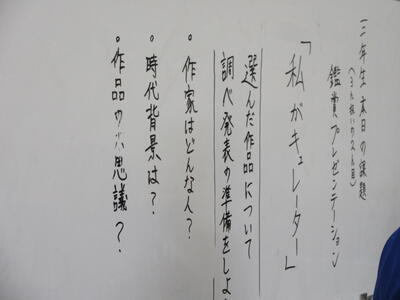 二年生 本日の課題
鑑賞プレゼンテーション
「私がキュレーター」
選んだ作品について
調べ発表の準備をしよ
・作家はどんな人？
・時代背景は？
・作品の不思議？